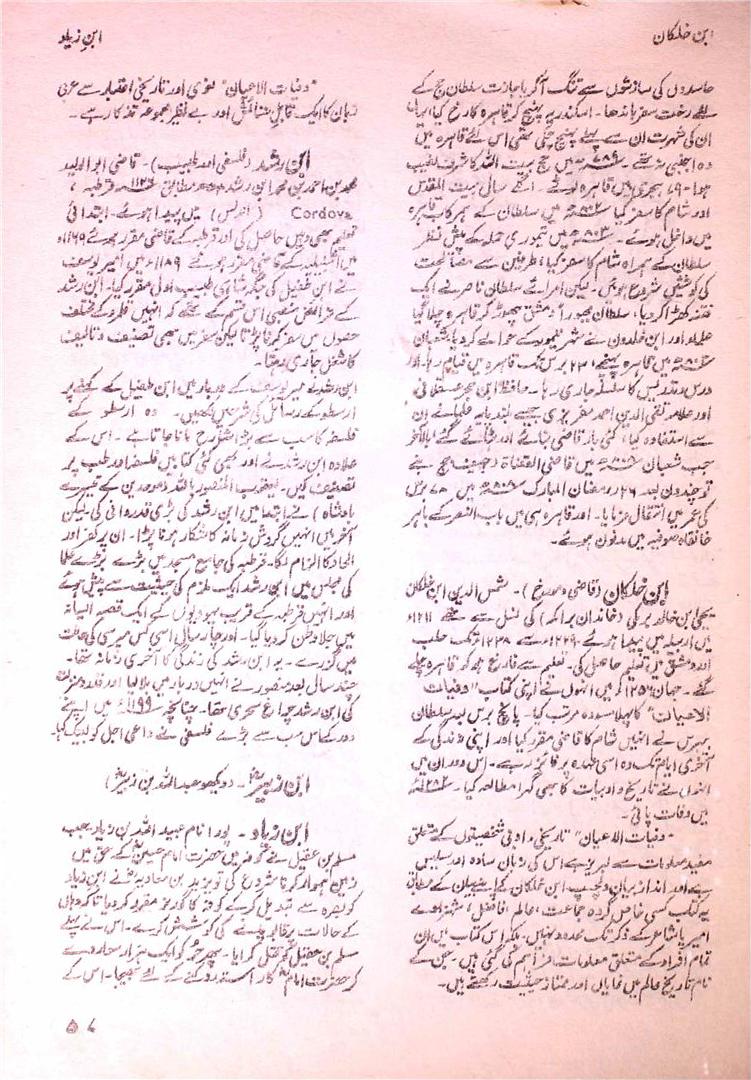 ابن خلکان
ابن زیاد
حاسدوں کی سازشوں سے تنگ آ کر با اجازت سلطان حج کے
لئے رخت سفر باندھا۔ اسکندریہ پہنچ کر قاہرہ کا رخ کیا، یہاں
ان کی شہرت ان سے پہلے پہنچ چکی تھی اس لئے قاہرہ میں
وہ اجنبی نہ تھے۔ میں حج بیت اللہ کا شرف نصیب
ہوا۔ ۷۹۰ ہجری میں قاہرہ لوٹے۔ اگلے سال بیت المقدس
اور شام کا سفر کیا میں سلطان کے ہمرکاب قاہرہ
میں داخل ہوئے۔ میں تیموری حملہ کے پیش نظر
سلطان کے ہمراہ شام کا سفر کیا، طرفین سے مصالحت
کی کوششیں شروع ہوئیں۔ لیکن امرائے سلطان ناصر نے ایک
فتنہ کھڑا کر دیا، سلطان مجبوراً دمشق چھوڑ کر قاہرہ چلا گیا
علماء اور ابن خلدون نے شہر تیمور کے حوالے کر دیا شعبان
میں قاہرہ پہنچے، برس تک قاہرہ میں قیام رہا۔ اور
درس و تدریس کا سلسلہ جاری رہا۔ حافظ ابن حجر عسقلانی
اور علامہ تقی الدین احمد مقریزی جیسے بلند پایہ علماء نے ان
سے استفادہ کیا، کئی بار قاضی بنائے اور ہٹائے گئے بالآخر
جب شعبان میں قاضی القضاۃ و چیف جج بنے
تو چند دن بعد ۲۶ رمضان المبارک میں برس
کی عمر میں انتقال فرمایا۔ اور قاہرہ ہی میں باب النصر کے باہر
خانقاہ صوفیہ میں مدفون ہوئے۔
ابن خلکان (قاضی و مورخ)۔ شمس الدین ابن خلکان
یحییٰ ابن خالد برمکی (خاندان برامکہ) کی نسل سے تھے ۱۲۱۱ء
میں اربیلہ میں پیدا ہوئے ۱۲۲۹ء سے ۱۲۳۸ء تک حلب
اور دمشق میں تعلیم حاصل کی۔ تعلیم سے فارغ ہو کر قاہرہ چلے
گئے۔ جہاں ۱۲۵۶ء میں انہوں نے اپنی کتاب "وفیات
الاعیان" کا پہلا مسودہ مرتب کیا۔ پانچ برس بعد سلطان
بیبرس نے انہیں شام کا قاضی مقرر کیا اور اپنی زندگی کے
آخری ایام تک وہ اسی عہدہ پر فائز رہے۔ اس دوران میں
انہوں نے تاریخ و ادبیات کا بھی گہرا مطالعہ کیا۔
میں وفات پائی۔
"وفیات الاعیان" تاریخی و ادبی شخصیتوں کے متعلق
مفید معلومات سے لبریز ہے اس کی زبان سادہ اور سلیس
ہے اور انداز بیان دلچسپ، ابن خلکان کے اپنے بیان کے مطابق
یہ کتاب کسی خاص گروہ جماعت، عالم، فاضل، شہزادے
امیر یا شاعر کے ذکر تک محدود نہیں۔ بلکہ اس کتاب میں ان
تمام افراد کے متعلق معلومات فراہم کی گئی ہیں۔ جن کے
نام تاریخ عالم میں نمایاں اور ممتاز حیثیت رکھتے ہیں۔
"وفیات الاعیان" لغوی اور تاریخی اعتبار سے عربی
زبان کا ایک قابل ستائش اور بے نظیر مجموعہ تذکار ہے۔
ابن رشد (فلسفی اور طبیب)۔ قاضی ابو الولید
محمد بن احمد بن محمد ابن رشد مطابق ۱۱۲۶ء قرطبہ،
Cordova (اندلس) میں پیدا ہوئے۔ ابتدائی
تعلیم بھی وہیں حاصل کی اور قرطبہ کے قاضی مقرر ہوئے ۱۱۶۹ء
میں اشبیلیہ کے قاضی مقرر ہوئے میں امیر یوسف
نے ابن طفیل کی جگہ شاہی طبیب اولیٰ مقرر کیا۔ ابن رشد
کے فرائض منصبی اس قسم کے تھے کہ انہیں قلمرو کے مختلف
حصوں میں سفر کرنا پڑتا لیکن سفر میں بھی تصنیف و تالیف
کا شغل جاری رہتا۔
ابن رشد نے امیر یوسف کے دربار میں ابن طفیل کے کہنے پر
ارسطو کے رسائل کی شرحیں لکھیں۔ وہ ارسطو کے
فلسفہ کا سب سے بڑا شارح مانا جاتا ہے۔ اس کے
علاوہ ابن رشد نے اور بھی کئی کتابیں فلسفہ اور طب پر
تصنیف کیں۔ یعقوب المنصور باللہ (موحدین کے تیسرے
بادشاہ) نے ابتدا میں ابن رشد کی بڑی قدردانی کی۔ لیکن
آخر میں انہیں گردش زمانہ کا شکار ہونا پڑا۔ ان پر کفر اور
الحاد کا الزام لگا۔ قرطبہ کی جامع مسجد میں بڑے بڑے علماء
کی مجلس میں ابن رشد ایک ملزم کی حیثیت سے پیش ہوئے
اور انہیں قرطبہ کے قریب یہودیوں کے ایک قصبہ الیسانہ
میں جلا وطن کر دیا گیا۔ اور چار سال اسی کس مپرسی کی حالت
میں گزرے۔ یہ ابن رشد کی زندگی کا آخری زمانہ تھا۔
چند سال بعد منصور نے انہیں دربار میں بلا لیا اور قدر و منزلت
کی ابن رشد چراغ سحری تھا۔ چنانچہ ۱۱۹۹ء میں اپنے
دور کے اس سب سے بڑے فلسفی نے داعی اجل کو لبیک کہا۔
ابن زبیرؓ۔ (دیکھو عبداللہ بن زبیرؓ)
ابن زیاد۔ پورا نام عبید اللہ بن زیاد، جب
مسلم بن عقیل نے کوفہ میں حضرت امام حسینؓ کے حق میں
زمین ہموار کرنا شروع کی تو یزید بن معاویہ نے ابن زیاد
کو بصرہ سے تبدیل کر کے کوفہ کا گورنر مقرر کر دیا تا کہ وہاں
کے حالات پر قابو پانے کی کوشش کرے۔ اس نے پہلے
مسلم بن عقیل کو قتل کرایا۔ پھر حر کو ایک ہزار سوار دے
کر حضرت امامؓ کا راستہ روکنے کے لئے بھیجا۔ اس کے
۵۷